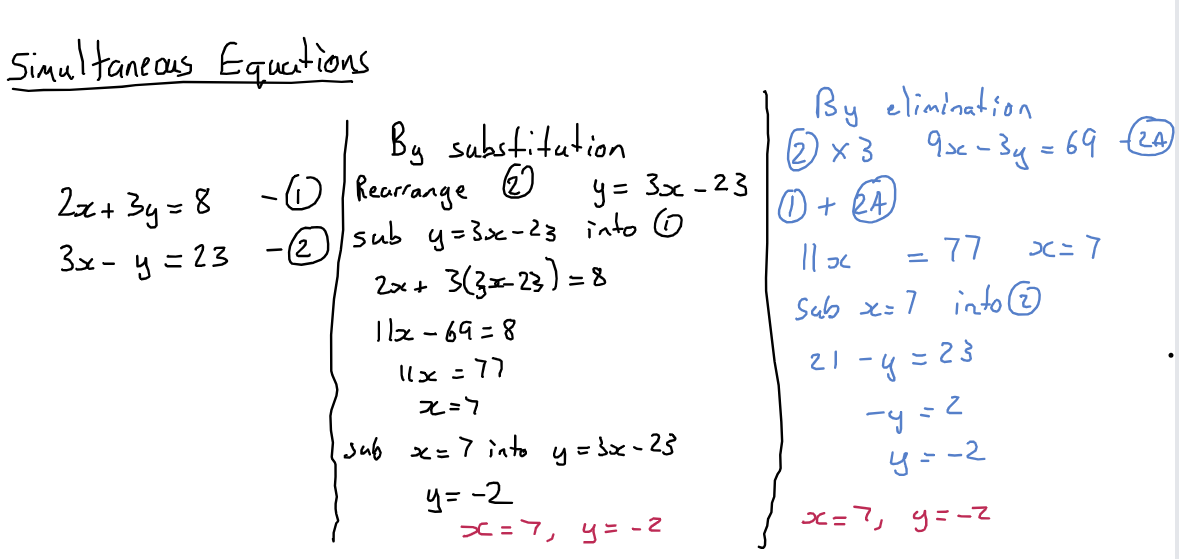 Simultaneous Equations
2x + 3y = 8 - ①
3x - y = 23 - ②
By substitution
Rearrange ② y = 3x - 23
sub y = 3x - 23 into ①
2x + 3(3x - 23) = 8
11x - 69 = 8
11x = 77
x = 7
sub x = 7 into y = 3x - 23
y = -2
x = 7, y = -2
By elimination
② × 3 9x - 3y = 69 - (2A)
① + (2A)
11x = 77 x = 7
Sub x = 7 into ②
21 - y = 23
-y = 2
y = -2
x = 7, y = -2